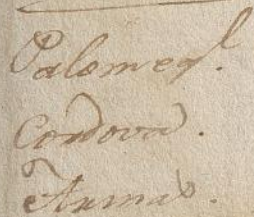 Palomeq.l
Cordova.
Armas.